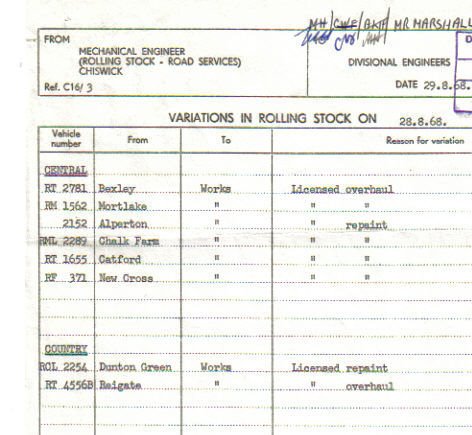 MH/GWF/BKF/ MR MARSHALL
FROM
MECHANICAL ENGINEER
(ROLLING STOCK - ROAD SERVICES)
CHISWICK
DIVISIONAL ENGINEERS
Ref. C16/ 3
DATE 29.8.68.
VARIATIONS IN ROLLING STOCK ON 28.8.68.
Vehicle number From To Reason for variation
CENTRAL
RT 2781 Bexley Works Licensed overhaul
RM 1562 Mortlake " " "
2152 Alperton " " repaint
RML 2289 Chalk Farm " " "
RT 1655 Catford " " "
RF 371 New Cross " " "
COUNTRY
RCL 2254 Dunton Green Works Licensed repaint
RT 4556B Reigate " " overhaul